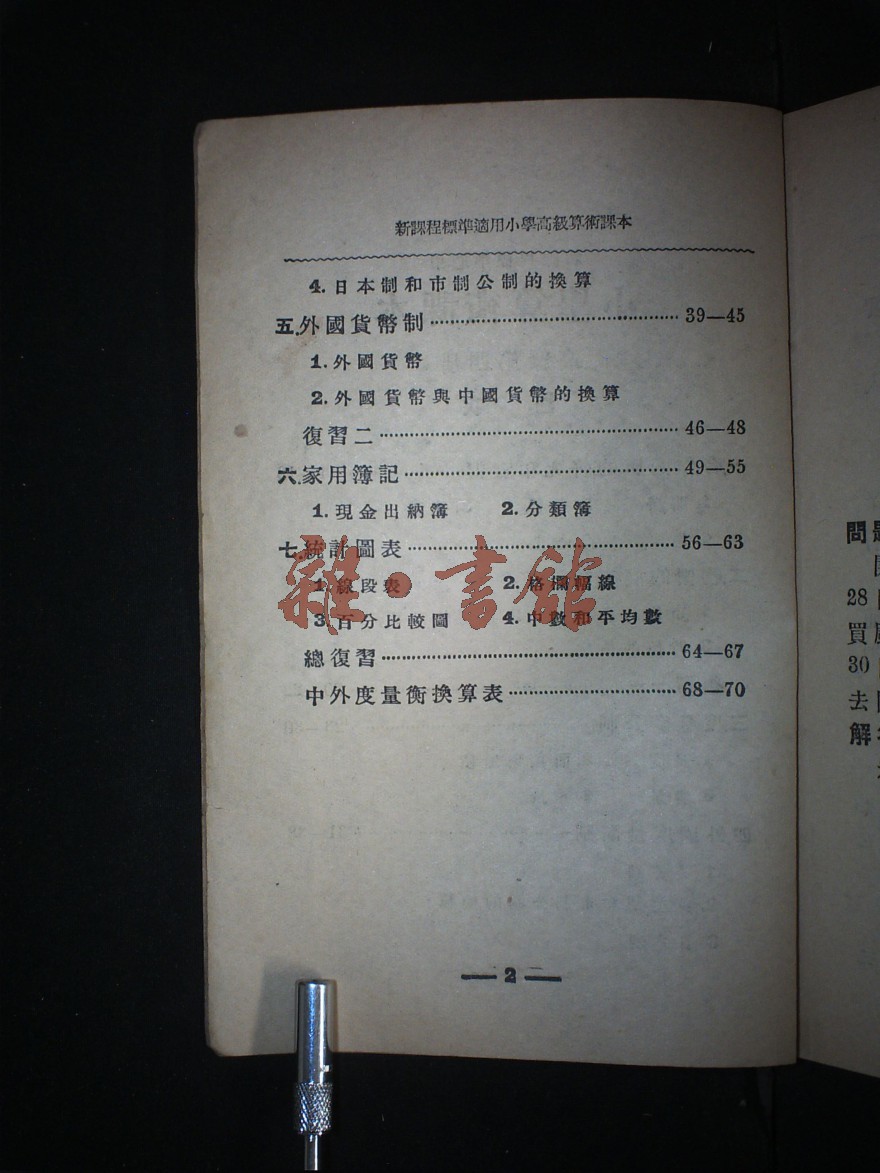 新課程標準適用小學高級算術課本
4. 日本制和市制公制的換算
五. 外國貨幣制 39—45
1. 外國貨幣
2. 外國貨幣與中國貨幣的換算
復習二 46—48
六. 家用簿記 49—55
1. 現金出納簿 2. 分類簿
七. 統計圖表 56—63
1. 線段表 2.
3. 百分比較圖 4. 中數和平均數
總復習 64—67
中外度量衡換算表 68—70
2
雜·書館
28
買
30
去
解